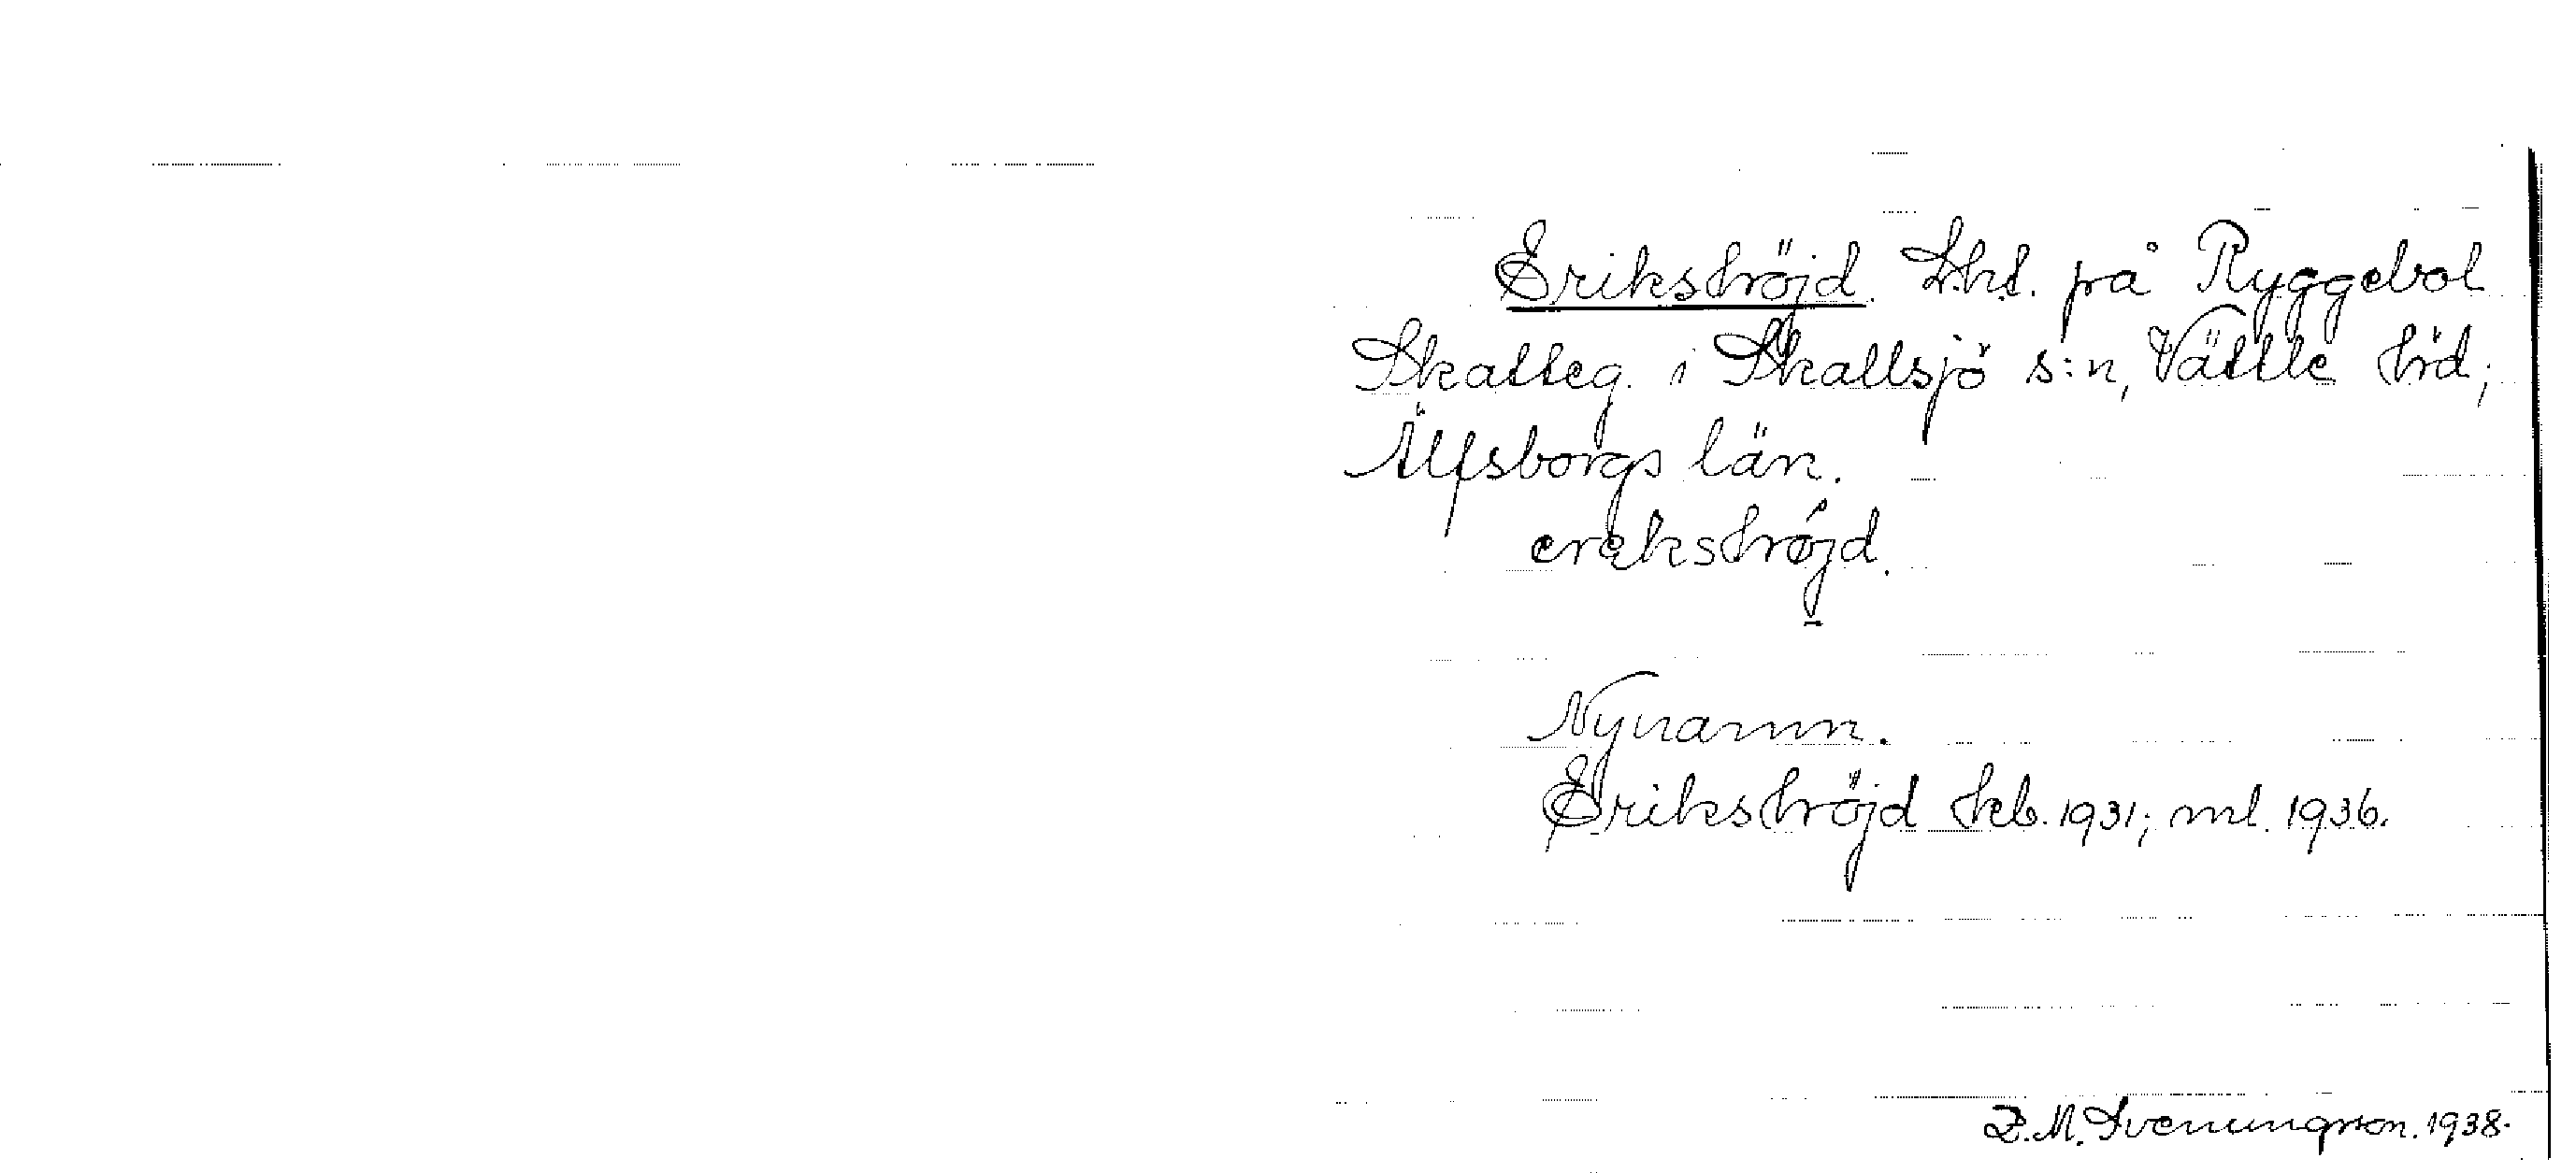 Erikshöjd. Lht. på Ryggebol
Skatteg. i Skallsjö s:n, Vättle hd;
Älfsborgs län.
erekshöjd.
Nynamn.
Erikshöjd hkb. 1931; ml. 1936.
Z. M. Svenungsson. 1938.